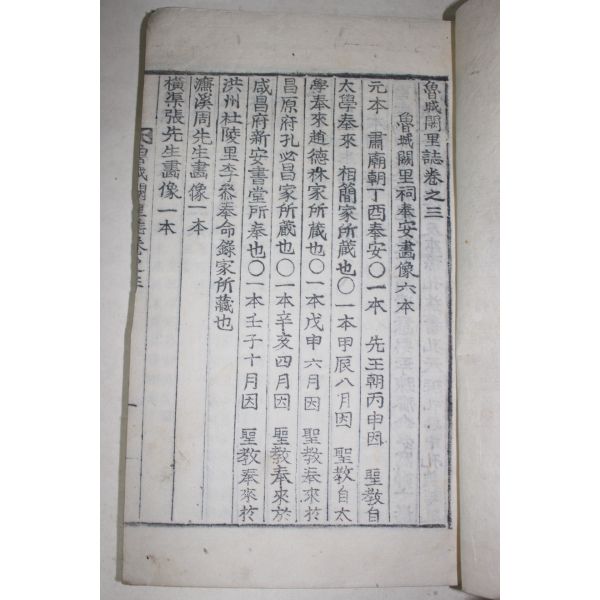 魯城闕里誌卷之三
魯城闕里祠奉安畵像六本
元本 肅廟朝丁酉奉安〇一本 先王朝丙申因 聖敎自
太學奉來 相簡家所蔵也〇一本甲辰八月因 聖敎自太
學奉來趙德株家所蔵也〇一本戊申六月因 聖敎奉來扵
昌原府孔必昌家所蔵也〇一本辛亥四月因 聖敎奉來於
咸昌府新安書堂所奉也〇一本壬子十月因 聖敎奉來扵
洪州杜陵里李叅奉命錄家所藏也
濂溪周先生畵像一本
橫渠張先生畵像一本
魯城闕里誌卷之三